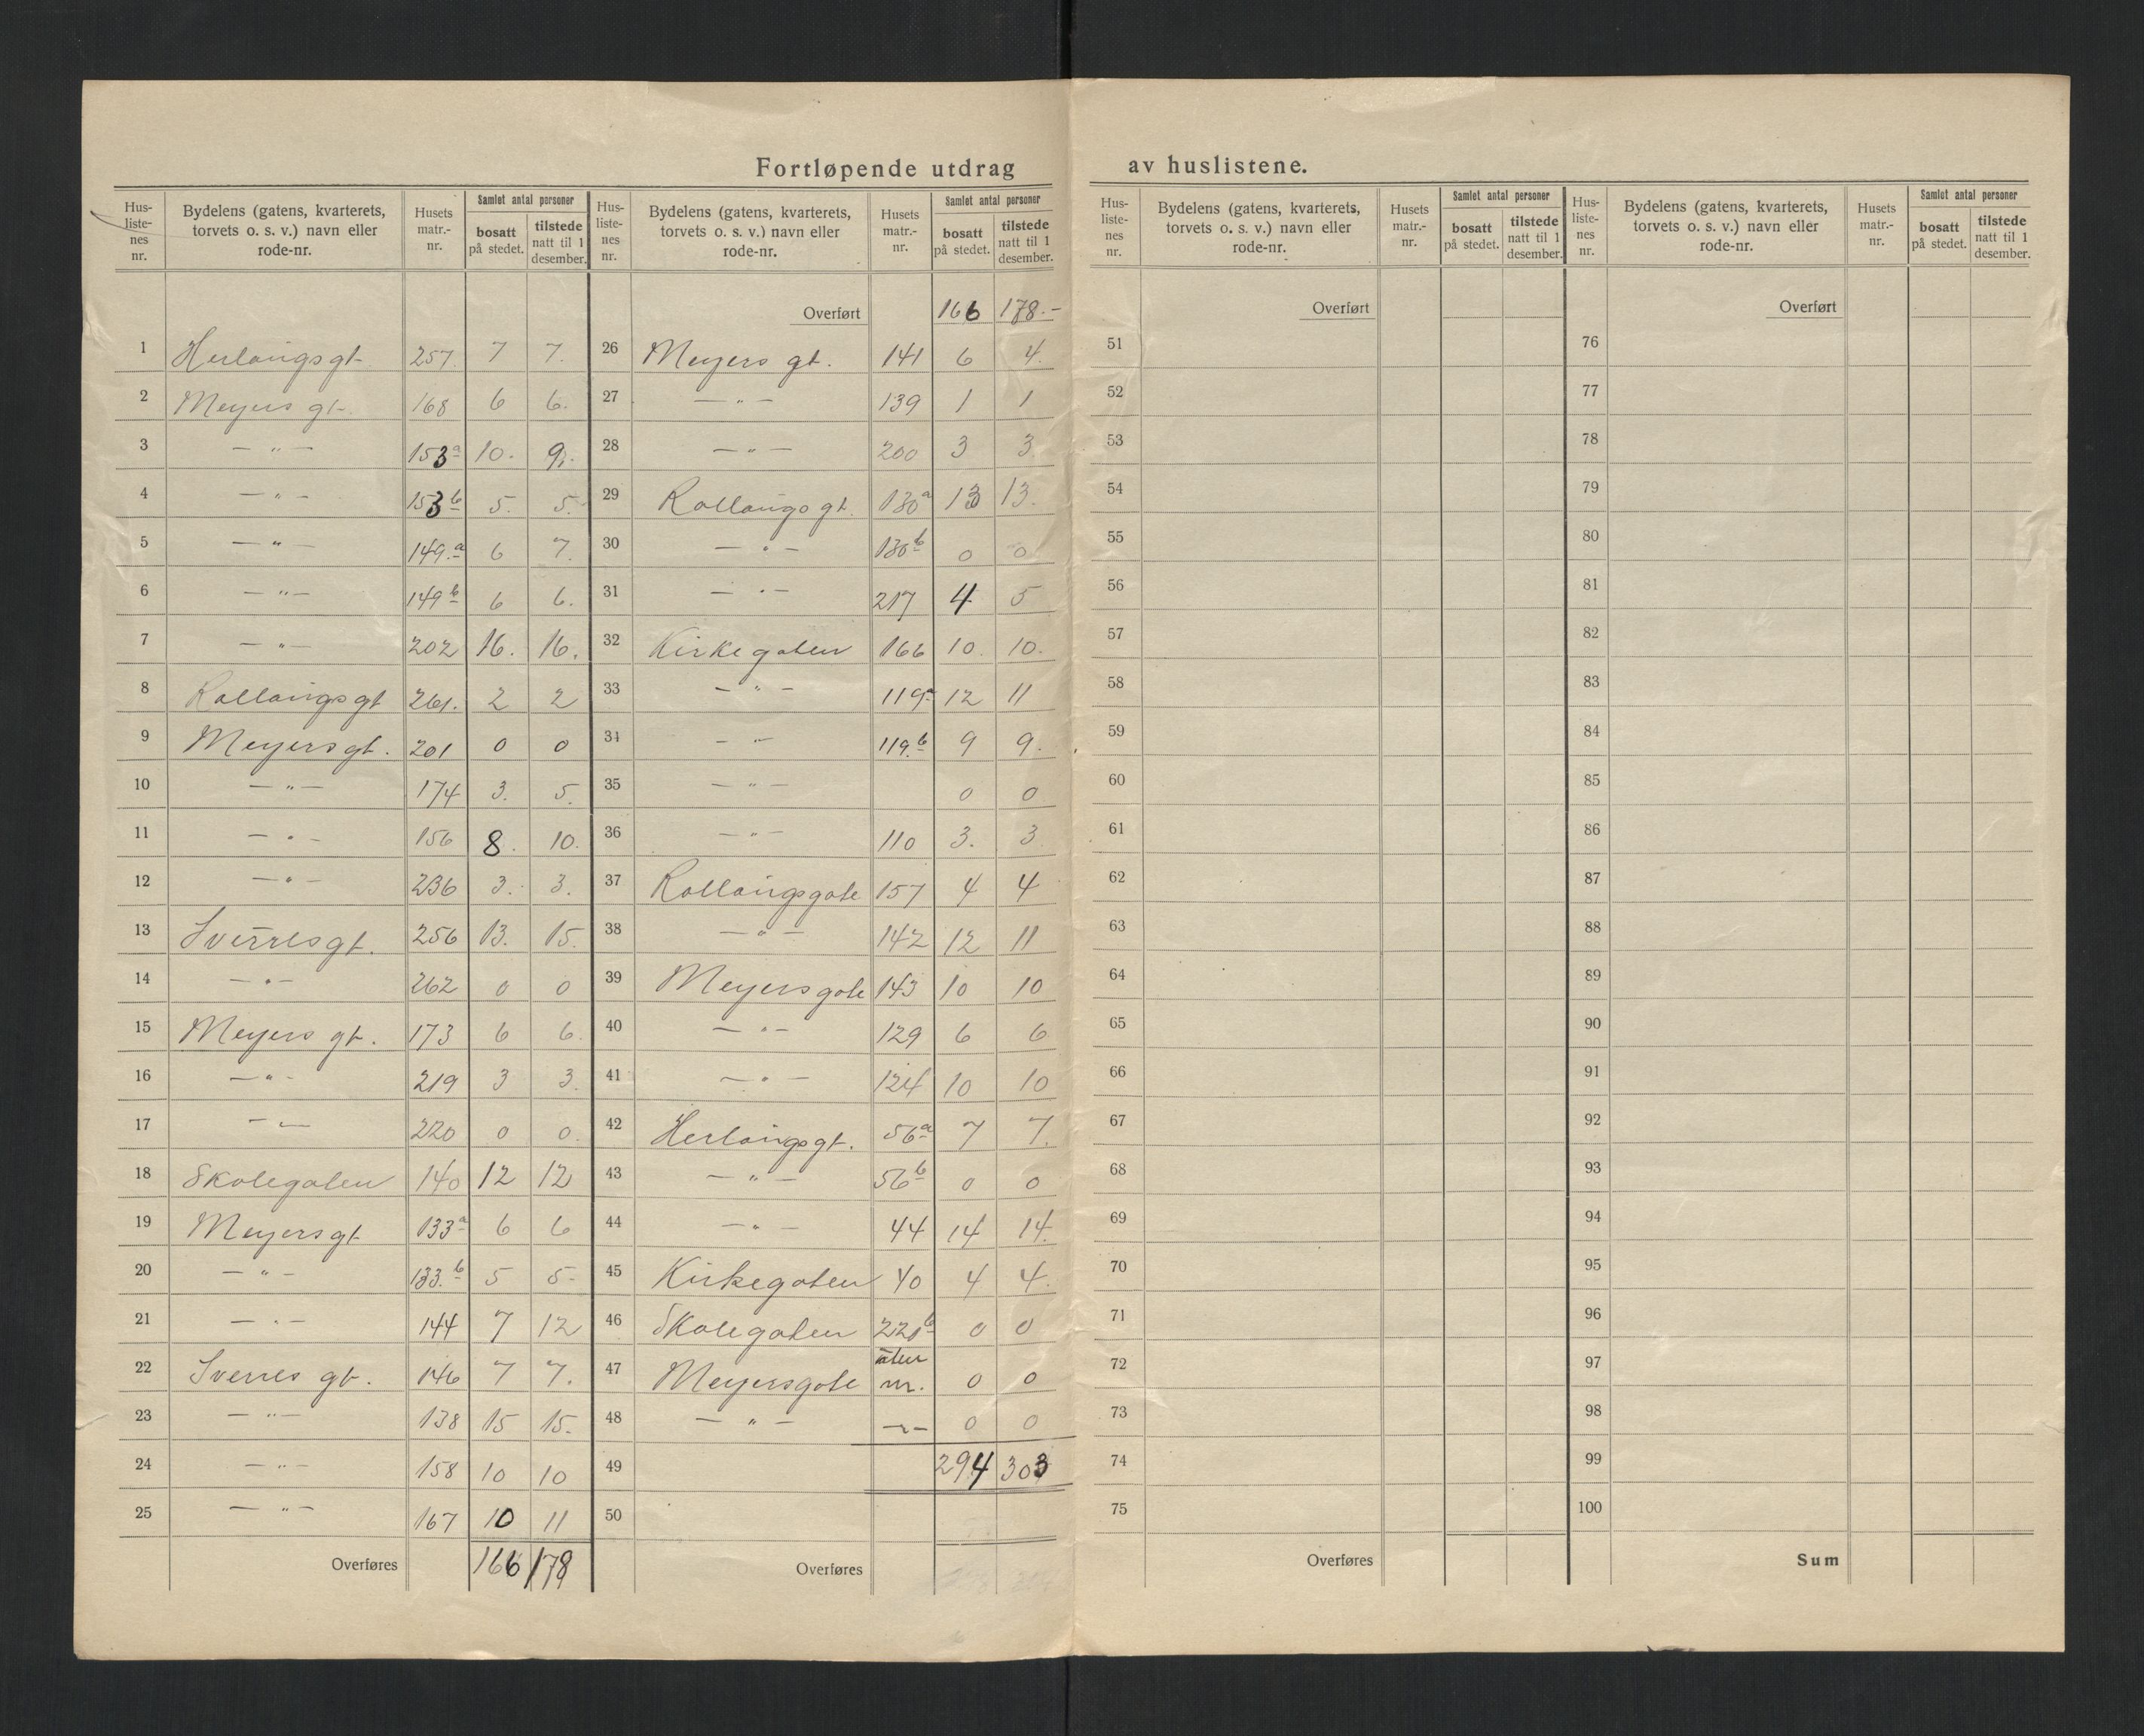 Fortløpende utdrag av huslistene.
Hus-liste-nes nr. Bydelens (gatens, kvarterets, torvets o. s. v.) navn eller rode-nr. Husets matr.-nr. Samlet antal personer bosatt på stedet. tilstede natt til 1 desember.
1 Herlaugsgt. 257. 7 7.
2 Meyers gt. 168 6 6.
3 — " — 153a 10. 9.
4 — " — 153b 5. 5.
5 — " — 149.a 6 7.
6 — " — 149b 6 6.
7 — " — 202 16. 16.
8 Rollaugsgt 261. 2 2
9 Meyersgt. 201 0 0
10 — " — 174 3. 5.
11 — " — 156 8. 10.
12 — " — 236 3. 3.
13 Sverresgt. 256 13. 15.
14 — " — 262 0 0
15 Meyers gt. 173 6 6.
16 — " — 219 3 3.
17 — " — 220 0 0.
18 Skolegaten 140 12 12
19 Meyersgt 133a 6 6
20 — " — 133.b 5 5
21 — " — 144 7 12
22 Sverres gt. 146 7 7.
23 — " — 138 15 15.
24 — " — 158 10 10
25 — " — 167 10 11
Overføres 166 178
Hus-liste-nes nr. Bydelens (gatens, kvarterets, torvets o. s. v.) navn eller rode-nr. Husets matr.-nr. Samlet antal personer bosatt på stedet. tilstede natt til 1 desember.
Overført 166 178.-
26 Meyers gt. 141 6 4.
27 — " — 139 1 1
28 — " — 200 3 3
29 Rollaugsgt. 130a 13 13.
30 — " — 130b 0 0
31 — " — 217 4 5
32 Kirkegaten 166 10. 10.
33 — " — 119a 12 11
34 — " — 119.b 9 9.
35 — " — 0 0
36 — " — 110 3. 3
37 Rollaugsgate 157 4 4
38 — " — 142 12 11
39 Meyersgate 143 10 10
40 — " — 129 6 6
41 — " — 124 10 10
42 Herlaugsgt. 56a 7 7.
43 — " — 56b 0 0
44 — " — 44 14 14.
45 Kirkegaten 40 4 4.
46 Skolegaten 220b 0 0
47 Meyersgate uten nr. 0 0
48 — " — — " — 0 0
49 294 303
50
Overføres
Hus-liste-nes nr. Bydelens (gatens, kvarterets, torvets o. s. v.) navn eller rode-nr. Husets matr.-nr. Samlet antal personer bosatt på stedet. tilstede natt til 1 desember.
Overført
51
52
53
54
55
56
57
58
59
60
61
62
63
64
65
66
67
68
69
70
71
72
73
74
75
Overføres
Hus-liste-nes nr. Bydelens (gatens, kvarterets, torvets o. s. v.) navn eller rode-nr. Husets matr.-nr. Samlet antal personer bosatt på stedet. tilstede natt til 1 desember.
Overført
76
77
78
79
80
81
82
83
84
85
86
87
88
89
90
91
92
93
94
95
96
97
98
99
100
Sum